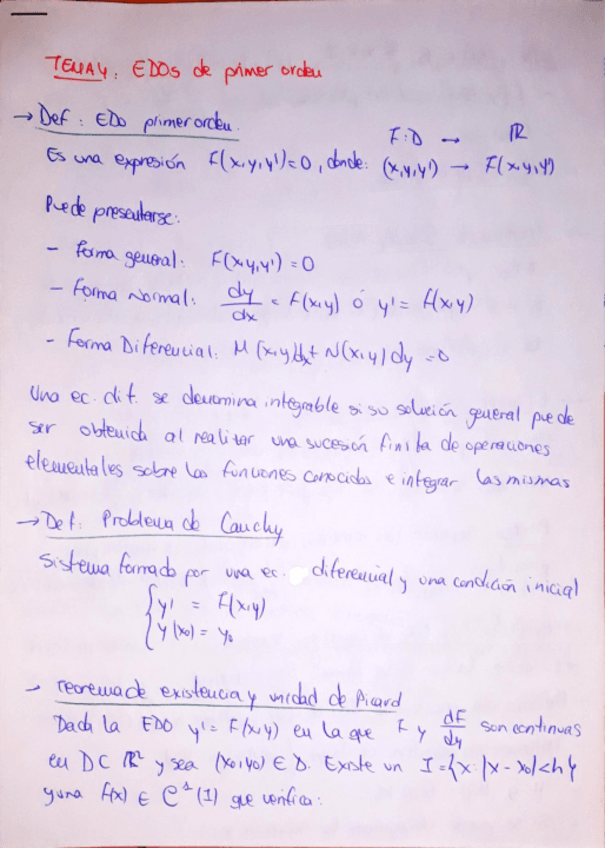 TEMA 4: EDOs de primer orden
→ Def: EDO primer orden.
F: D → ℝ
Es una expresión F(x,y,y')=0, donde: (x,y,y') → F(x,y,y')
Puede presentarse:
- Forma general: F(x,y,y') = 0
- Forma Normal: dy/dx = F(x,y) ó y' = f(x,y)
- Forma Diferencial: M(x,y)dx + N(x,y)dy = 0
Una ec. dif. se denomina integrable si su solución general puede
ser obtenida al realizar una sucesión finita de operaciones
elementales sobre las funciones conocidas e integrar las mismas
→ Def: Problema de Cauchy
Sistema formado por una ec. diferencial y una condición inicial
{ y' = F(x,y)
{ y(x0) = y0
→ Teorema de existencia y unidad de Picard
Dada la EDO y' = F(x,y) en la que F y dF/dy son continuas
en D ⊂ ℝ² y sea (x0,y0) ∈ D. Existe un I = {x: |x - x0| < h}
y una f(x) ∈ C¹(I) que verifica: